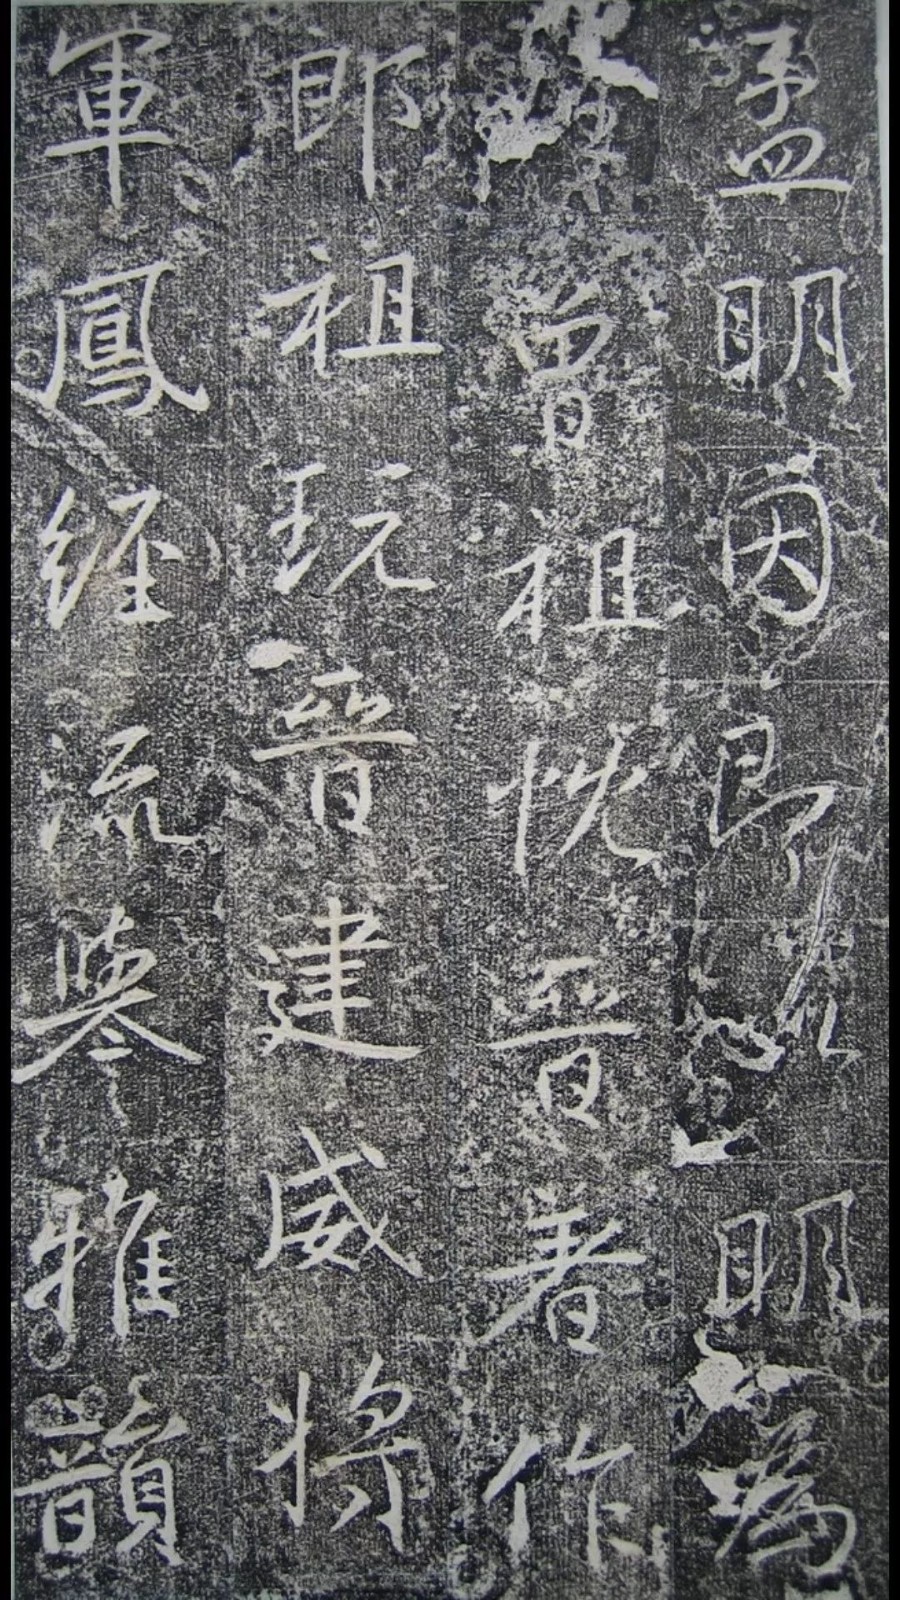 孟明因即明為
曾祖恱晉著作
郎祖玩晉建威將
軍鳳經流譽雅韻